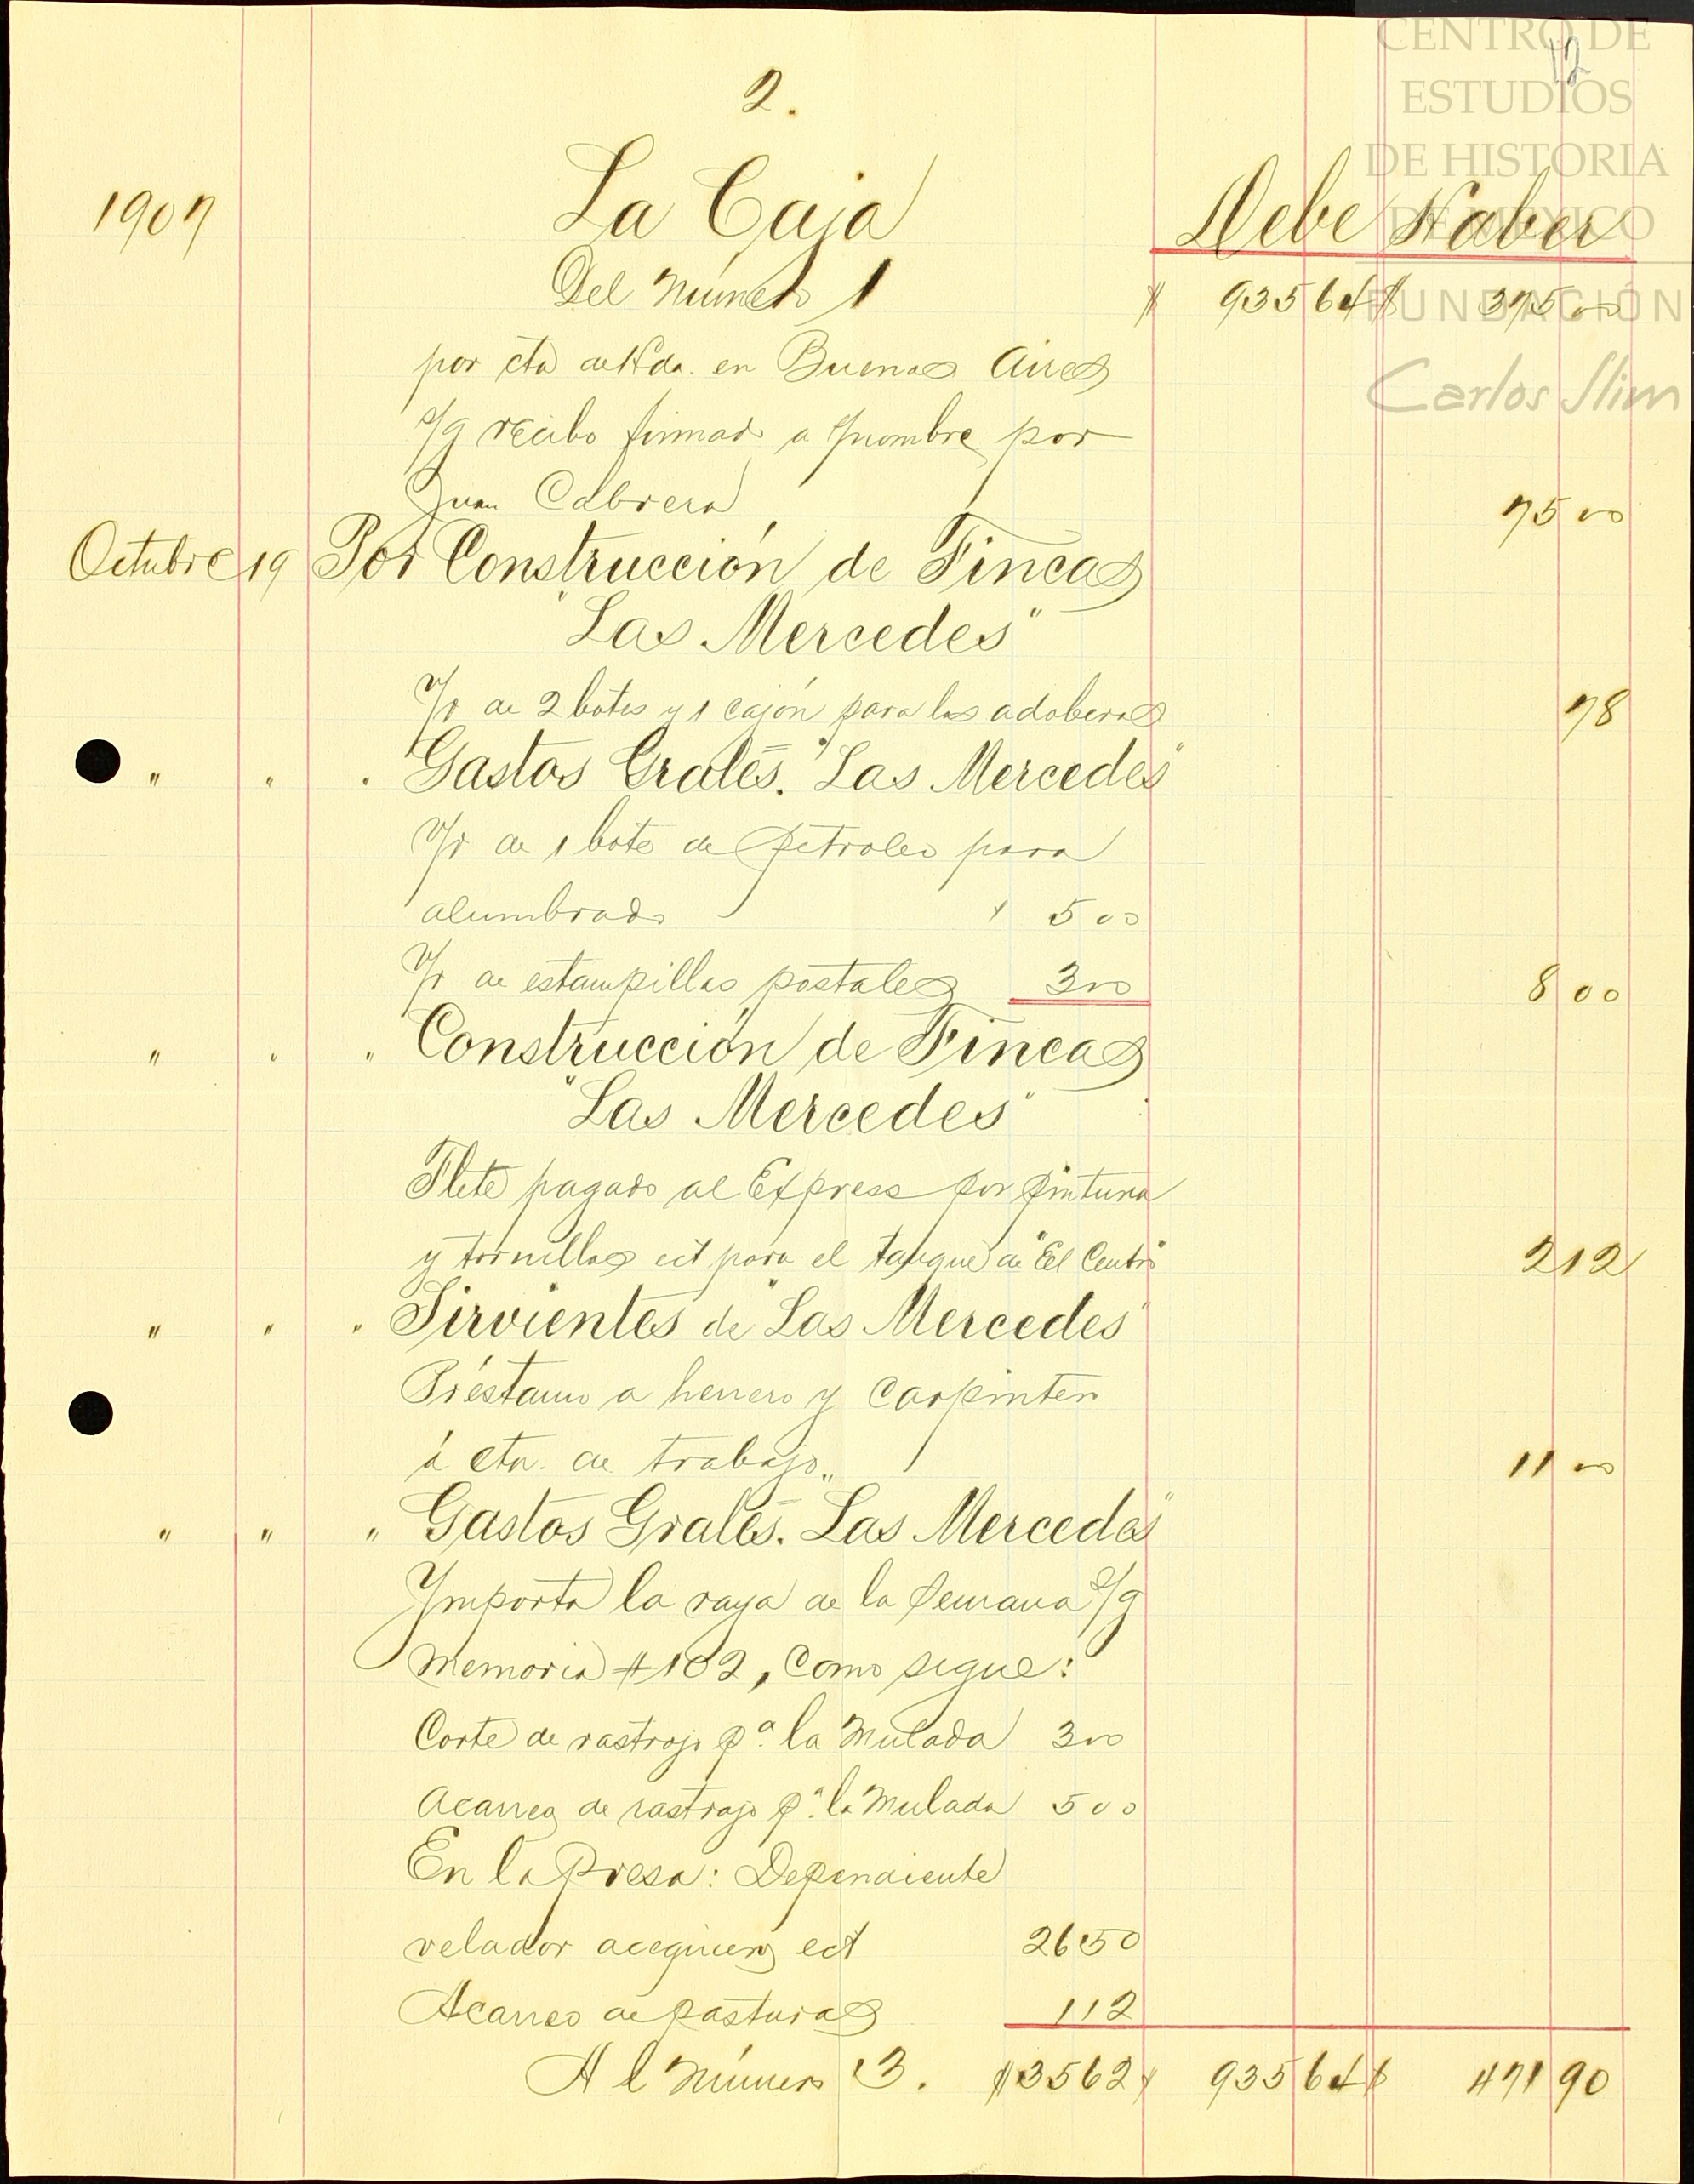 CENTRO DE
ESTUDIOS
DE HISTORIA
DE MÉXICO
FUNDACIÓN
Carlos Slim
12
2.
1907 La Caja Debe Haber
Del Número 1 $ 935 64 $ 375 00
por cta de Hda. en Buenos Aires
s/g recibo firmado a s/nombre por
Juan Cabrera 75 00
Octubre 19 Por Construcción de Fincas
"Las Mercedes"
v/r de 2 botes y 1 cajón para las adoberas 78
" " " Gastos Grales. "Las Mercedes"
v/r de 1 bote de petroleo para
alumbrado $ 5 00
v/r de estampillas postales 3 00 8 00
" " " Construcción de Fincas
"Las Mercedes"
Flete pagado al Express por pintura
y tornillos ect para el tanque de "El Centro" 2 12
" " " Sirvientes de "Las Mercedes"
Préstamo a herrero y carpintero
á cta. de trabajo 11 00
" " " Gastos Grales. "Las Mercedes"
Ymporta la raya de la semana s/g
memoria #102, como sigue:
Corte de rastrojo pa. la mulada 3 00
Acarreo de rastrojo pa. la mulada 5 00
En la Presa: Dependiente
velador acequiero ect 26 50
Acarreo de pasturas 1 12
Al Número 3. $ 35 62 $ 935 64 $ 471 90